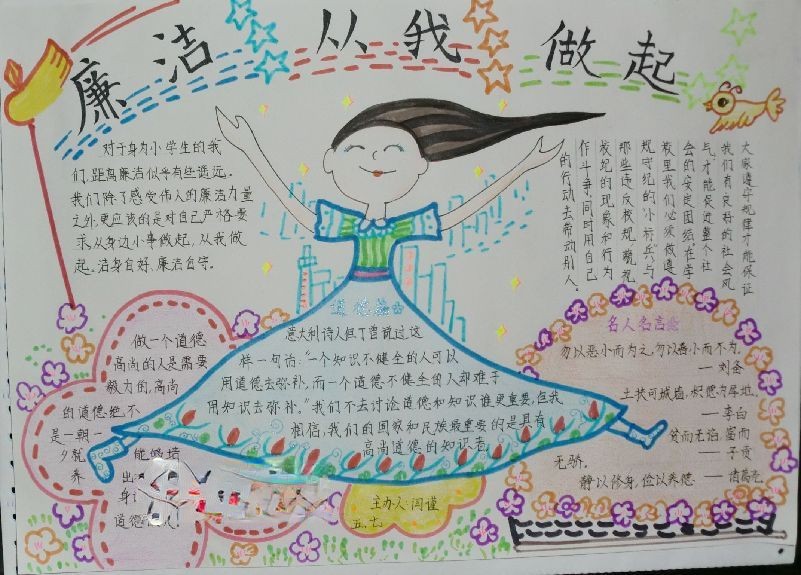 廉洁 从我 做起
对于身为小学生的我
们,距离廉洁似乎有些遥远。
我们除了感受伟人的廉洁力量
之外,更应该的是对自己严格要
求,从身边小事做起,从我做
起。洁身自好,廉洁自守。
大家遵守规律才能保证
我们有良好的社会风
气,才能促进整个社
会的安定团结,在学
校里我们必须做遵
规守纪的小标兵,与
那些违反校规,藐视
校纪的现象和行为
作斗争,同时用自己
的行动去带动别人。
道德
意大利诗人但丁曾说过这
样一句话:"一个知识不健全的人可以
用道德去弥补,而一个道德不健全的人却难于
用知识去弥补。"我们不去讨论道德和知识谁更重要,但我
相信,我们的国家和民族最重要的是具有
高尚道德的知识者。
做一个道德
高尚的人是需要
毅力的,高尚
的道德绝不
是一朝一
夕就 能够培
养 出
身
道德
名人名言
勿以恶小而为之,勿以善小而不为。
——刘备
土扶可城墙,积德为厚地。
——李白
贫而无谄,富而
无骄。 ——子贡
静以修身,俭以养德 ——诸葛亮
主办人:闫谨
五、七